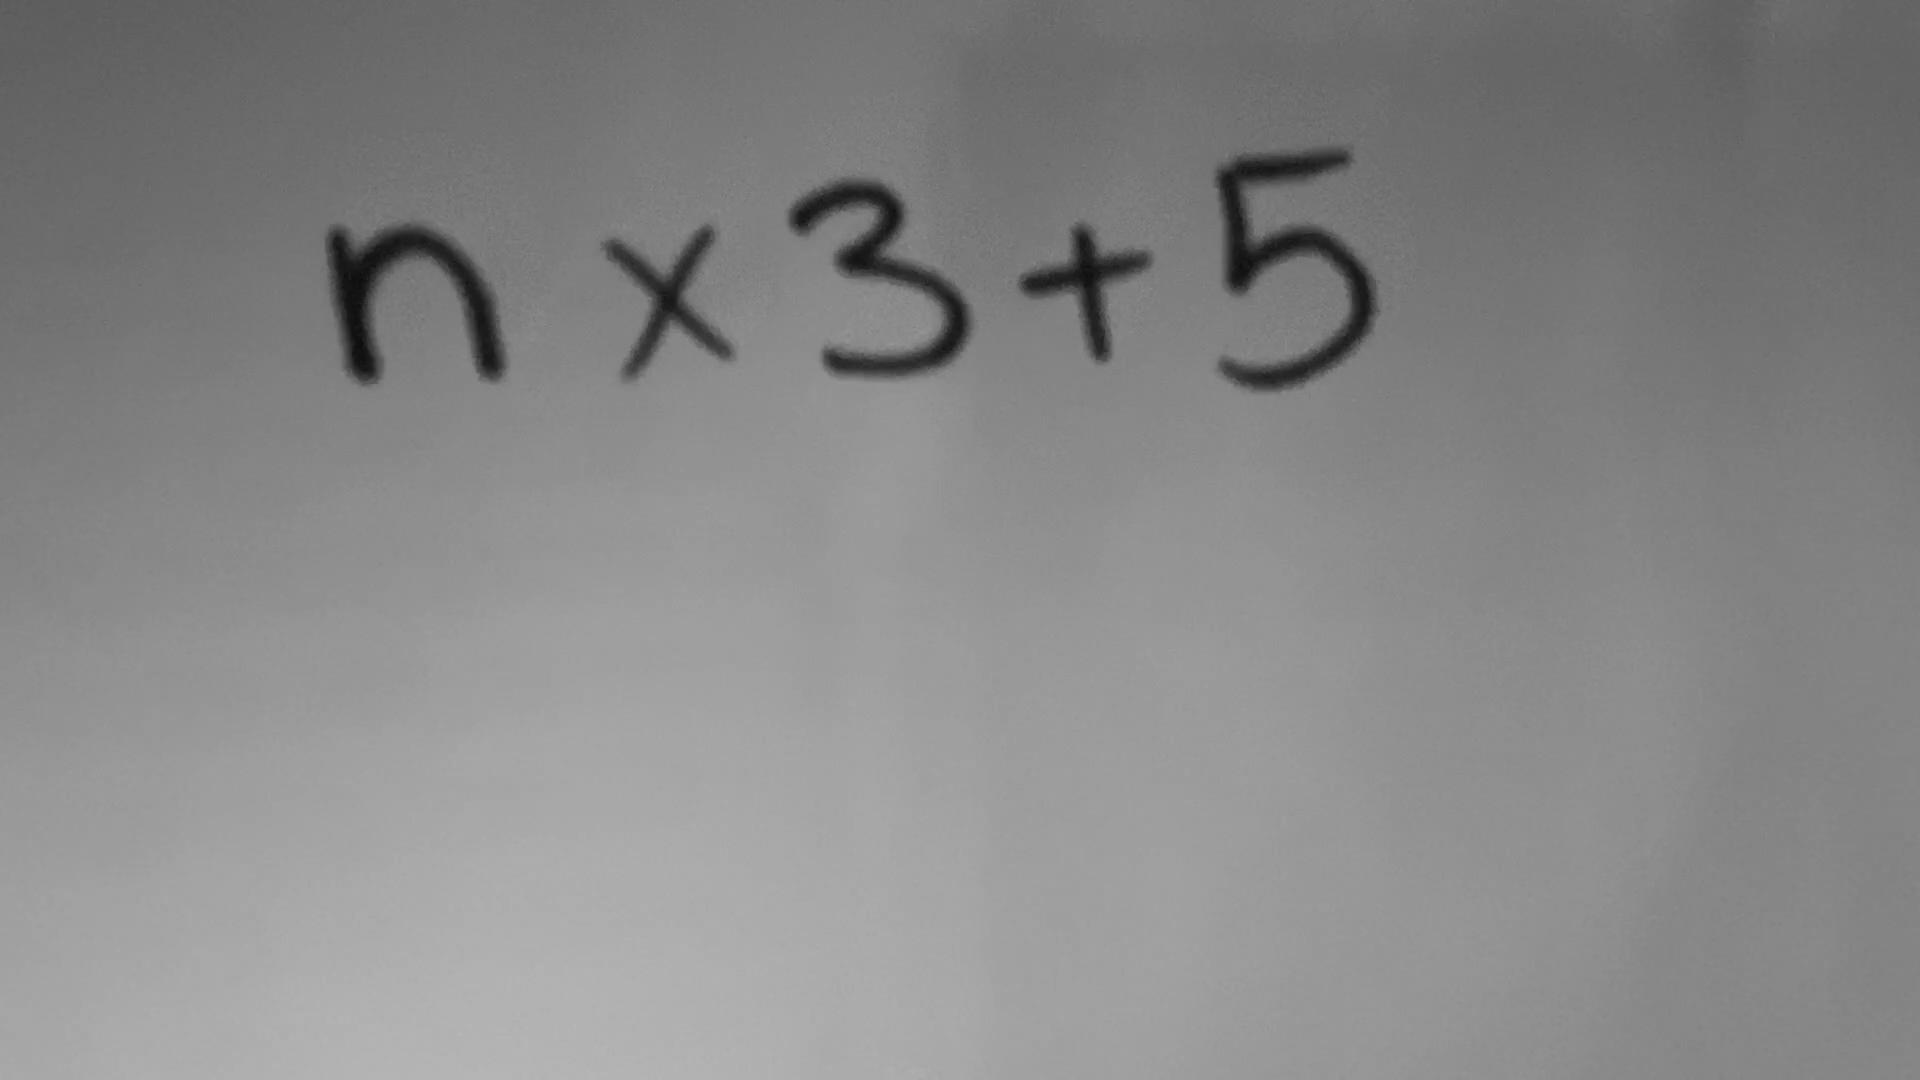 n × 3 + 5